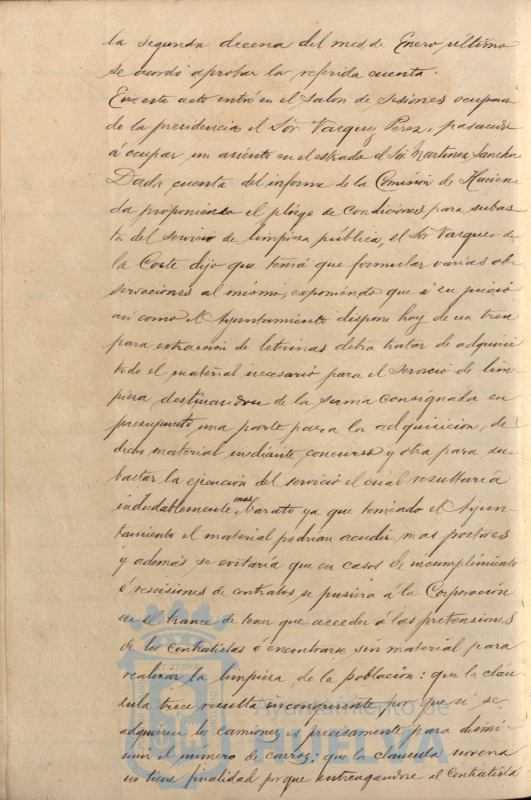 la segunda decena del mes de Enero último
se acordó aprobar la referida cuenta.
En este acto entró en el Salon de Sesiones ocupan
do la presidencia el Sor Vazquez Perez, pasando
á ocupar un asiento en el estrado el Sr. Martinez Sanchez
Dada cuenta del informe de la Comisión de Hacien
da proponiendo el pliego de condiciones para subas
ta del servicio de limpieza pública, el Sor Vazquez de
la Corte dijo que tenia que formular varias ob
servaciones al mismo, exponiendo que á su juicio
asi como el Ayuntamiento dispone hoy de un tren
para extracción de letrinas debia tratar de adquirir
todo el material necesario para el servicio de lim
pieza, destinandose de la suma consignada en
presupuesto una parte para la adquisición de
dicho material mediante concurso y otra para su
bastar la ejecución del servicio el cual resultaría
indudablemente mas barato ya que teniendo el Ayun
tamiento el material podrian acudir mas postores
y además se evitaria que en casos de incumplimiento
ó rescisiones de contratos, se pusiera á la Corporación
en el trance de tener que acceder á las pretensiones
de los contratistas ó encontrarse sin material para
realizar la limpieza de la población: que la cláu
sula trece resulta incongruente por que si se
adquieren los camiones es precisamente para dismi
nuir el número de carros: que la clausula novena
no tiene finalidad porque entregandose al Contratista
Ayuntamiento de
HUELVA